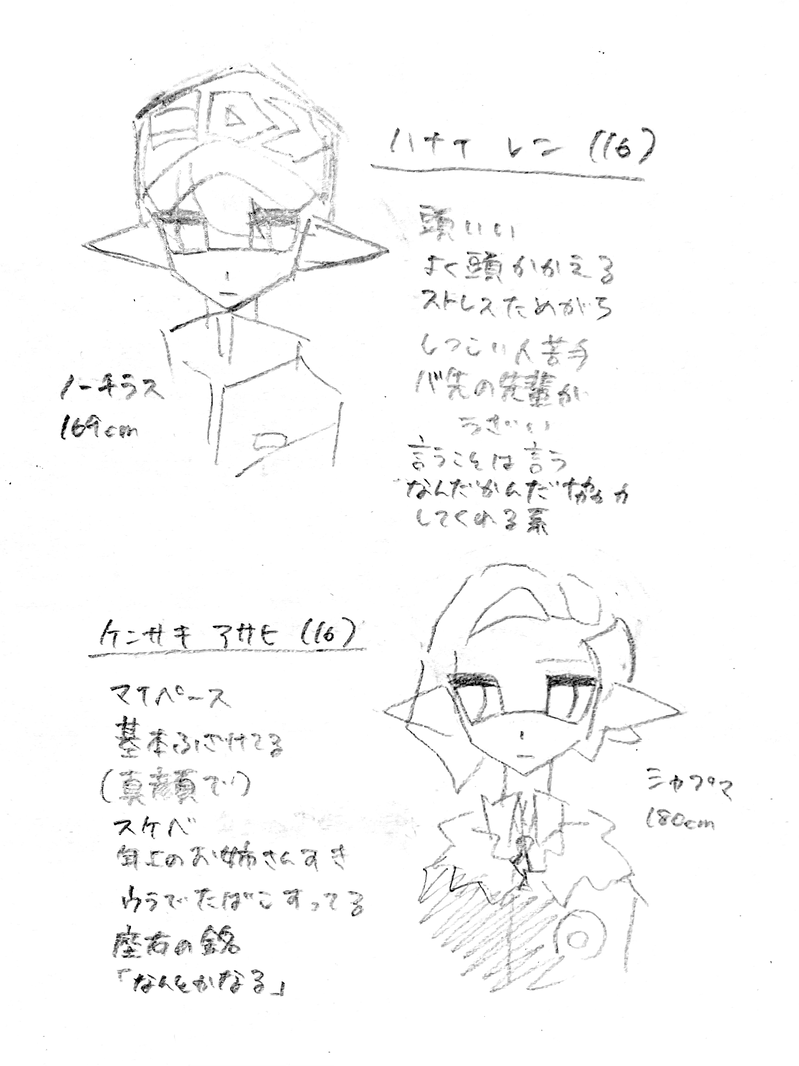 ハナイ レン (16)
頭いい
よく頭かかえる
ストレスためがち
しつこい人苦手
バ先の先輩が
うざい
言うことは言う
なんだかんだ
してくれる系
ノーチラス
169cm
ケンサキ アサヒ (16)
マイペース
基本ふざけてる
(真顔で)
スケベ
年上のお姉さんすき
ウラでたばこすってる
座右の銘
「なんとかなる」
180cm